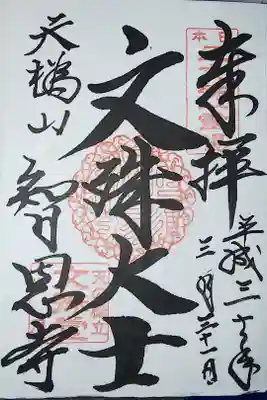 奉拝
平成三十年
三月三十一日
文殊大士
天橋山
智恩寺